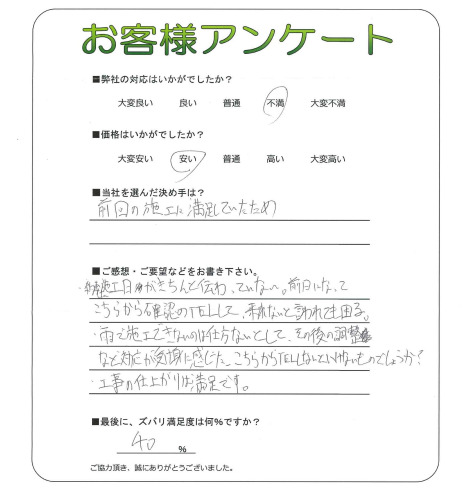 お客様アンケート
■弊社の対応はいかがでしたか?
大変良い 良い 普通 不満 大変不満
■価格はいかがでしたか?
大変安い 安い 普通 高い 大変高い
■当社を選んだ決め手は?
前回の施工に満足していたため
■ご感想・ご要望などをお書き下さい。
・施工日がきちんと伝わっていない。前日になって
こちらから確認のTELして、来れないと言われても困る。
・雨で施工できないのは仕方ないとして、その後の調整
など対応が受身に感じた。こちらからTELしないといけないものでしょうか?
・工事の仕上がりは満足です。
■最後に、ズバリ満足度は何%ですか?
40 %
ご協力頂き、誠にありがとうございました。